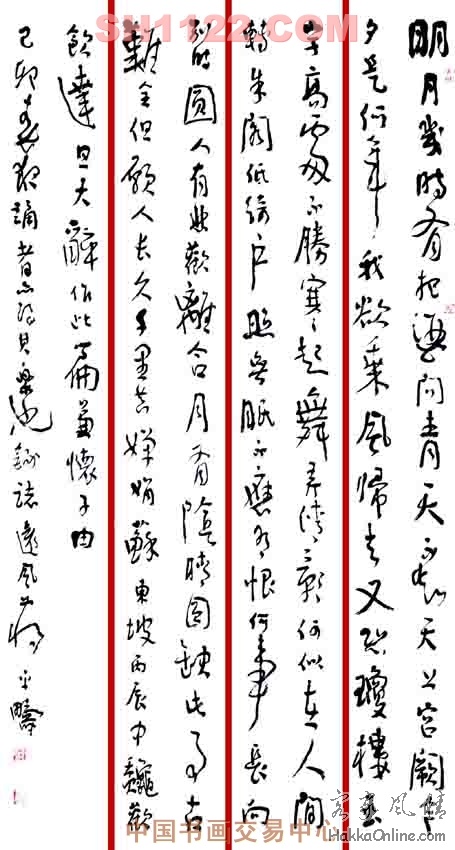 SH1122.COM
明月幾時有把酒問青天不知天上宮闕今
夕是何年我欲乘風歸去又恐瓊樓玉
宇高處不勝寒起舞弄清影何似在人間
轉朱閣低綺户照無眠不應有恨何事長向
别時圓人有悲歡離合月有陰晴圓缺此事古
難全但願人長久千里共嬋娟蘇東坡丙辰中龝歡
飲達旦大醉作此篇兼懷子由
己卯春
中国书画交易中心
客家风情
HakkaOnline.com